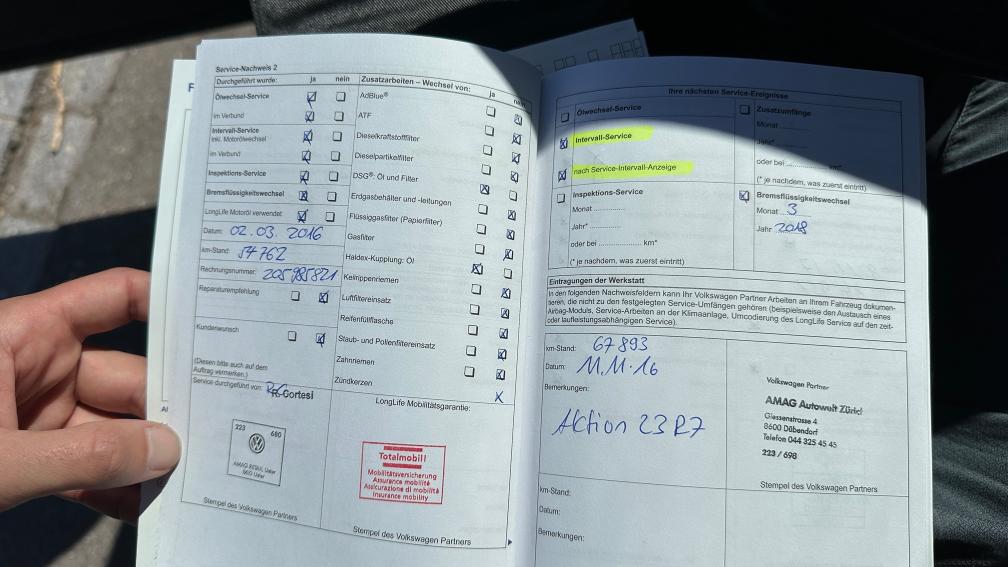 Service-Nachweis 2
Durchgeführt wurde: ja nein
Ölwechsel-Service
im Verbund
Intervall-Service
inkl. Motorölwechsel
im Verbund
Inspektions-Service
Bremsflüssigkeitswechsel
LongLife Motoröl verwendet
Datum: 02.03.2016
km-Stand: 54762
Rechnungsnummer: 205985821
Reparaturempfehlung
Kundenwunsch
(Diesen bitte auch auf dem
Auftrag vermerken.)
Service durchgeführt von: Cortesi
223 680
AMAG RETAIL Uster
8610 Uster
Stempel des Volkswagen Partners
Zusatzarbeiten – Wechsel von: ja nein
AdBlue®
ATF
Dieselkraftstofffilter
Dieselpartikelfilter
DSG®: Öl und Filter
Erdgasbehälter und -leitungen
Flüssiggasfilter (Papierfilter)
Gasfilter
Haldex-Kupplung: Öl
Keilrippenriemen
Luftfiltereinsatz
Reifenfüllflasche
Staub- und Pollenfiltereinsatz
Zahnriemen
Zündkerzen
X
LongLife Mobilitätsgarantie:
Totalmobil!
Mobilitätsversicherung
Assurance mobilité
Assicurazione di mobilità
Insurance mobility
Stempel des Volkswagen Partners
Ihre nächsten Service-Ereignisse
Ölwechsel-Service
Intervall-Service
nach Service-Intervall-Anzeige
Inspektions-Service
Monat ............
Jahr* ............
oder bei .................... km*
(* je nachdem, was zuerst eintritt)
Zusatzumfänge
Monat
Jahr*
oder bei .................... km*
(* je nachdem, was zuerst eintritt)
Bremsflüssigkeitswechsel
Monat 3
Jahr 2018
Eintragungen der Werkstatt
In den folgenden Nachweisfeldern kann Ihr Volkswagen Partner Arbeiten an Ihrem Fahrzeug dokumen-
tieren, die nicht zu den festgelegten Service-Umfängen gehören (beispielsweise den Austausch eines
Airbag-Moduls, Service-Arbeiten an der Klimaanlage, Umcodierung des LongLife Service auf den zeit-
oder laufleistungsabhängigen Service).
km-Stand: 67893
Datum: 11.11.16
Bemerkungen:
Aktion 23R7
Volkswagen Partner
AMAG Autowelt Zürich
Giessenstrasse 4
8600 Dübendorf
Telefon 044 325 45 45
223 / 698
Stempel des Volkswagen Partners
km-Stand:
Datum:
Bemerkungen: